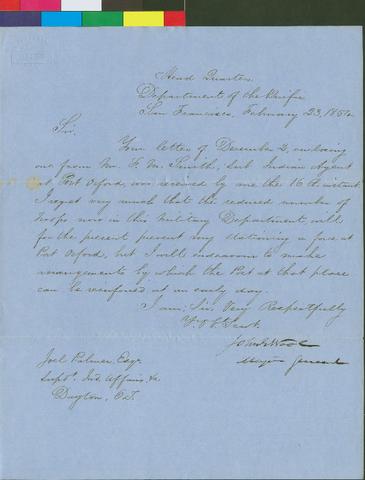 Head Quarters
Department of the Pacific
San Francisco, February 23, 185
Sir.
Your letter of December 2, enclosing
one from Mr. F. M. Smith, Sub Indian Agent
at Port Orford, was received by me the 16th instant.
I regret very much that the reduced number of
troops now in this Military Department, will
for the present prevent my stationing a force at
Port Orford, but I will endeavour to make
arrangements by which the Post at that place
can be reinforced at an early day.
I am, Sir, Very Respectfully
Yr. Obt. Servt.
John E Wool
Major General
Joel Palmer, Esqr.
Supt. Ind. Affairs &c
Dayton, O.T.